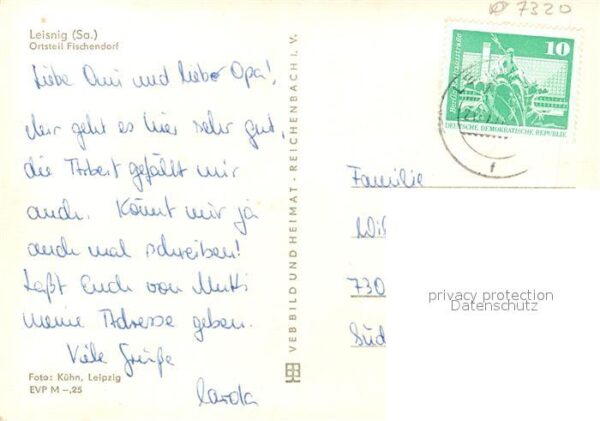 7320
Leisnig (Sa.)
Ortsteil Fischendorf
Liebe Omi und lieber Opa!
Mir geht es hier sehr gut,
die Arbeit gefällt mir
auch. Könnt mir ja
auch mal schreiben!
Laßt Euch von Mutti
meine Adresse geben.
Viele Grüße
Foto: Kühn, Leipzig
EVP M –,25
VEB BILD UND HEIMAT · REICHENBACH I. V.
10
DEUTSCHE DEMOKRATISCHE REPUBLIK
f
Familie
730
Süd
privacy protection
Datenschutz